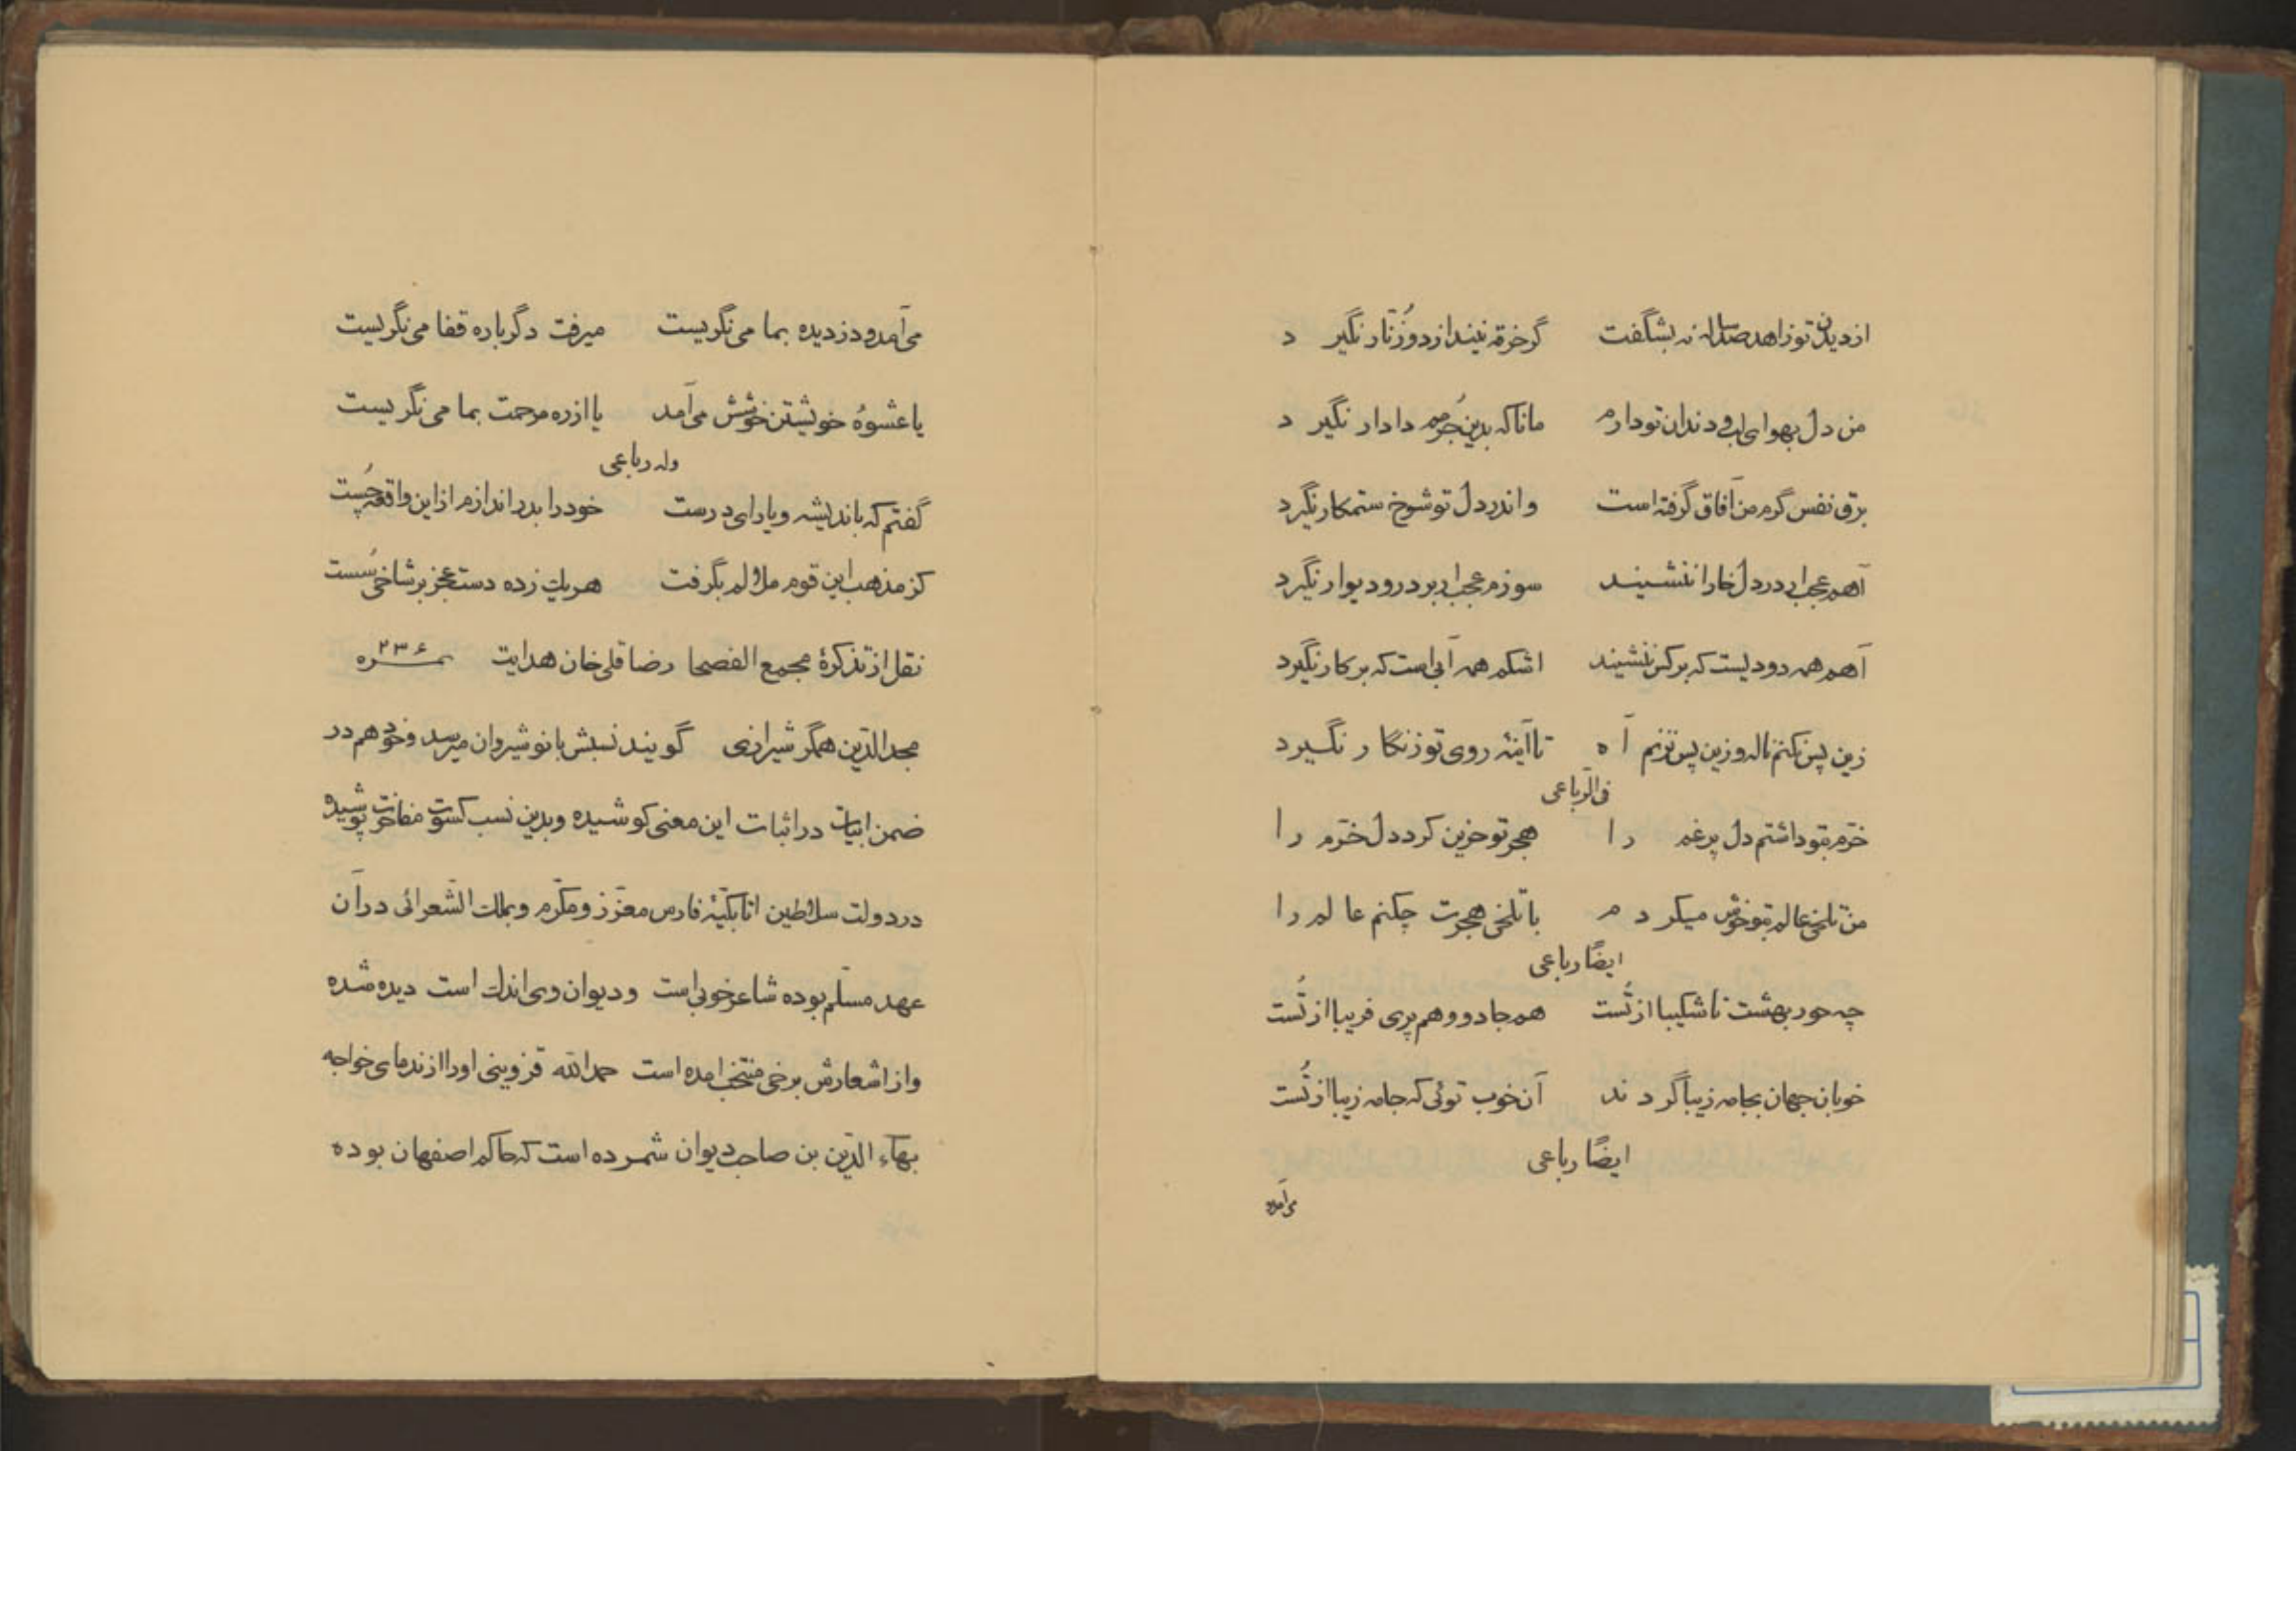 از دیدن تو زاهد صد ساله نه بشگفت گر خرقه نیندازد و زُنّار نگیرد
من دل بهوای لب و دندان تو دارم مانا که بدین جُرمم دادار نگیرد
برق نفس گرم من آفاق گرفته است و اندر دل تو شوخ ستمکار نگیرد
آهم عجب ار در دل خارا ننشیند سوزم عجب ار بر در و دیوار نگیرد
آهم همه دودیست که بر کس ننشیند اشکم همه آبی است که بر کار نگیرد
زین پس نکنم ناله و زین پس نزنم آه تا آینهٔ روی تو زنگار نگیرد
فی الرّباعی
خرّم بتو داشتم دل پر غم را هجر تو حزین کرد دل خرّم را
من تلخی عالم بتو خوش میکردم با تلخی هجرت چکنم عالم را
ایضًا رباعی
چه حور بهشت ناشکیبا از تُست هم جادو و هم پری فریبا از تُست
خوبان جهان بجامه زیبا گردند آن خوب توئی که جامه زیبا از تُست
ایضًا رباعی
می‌آمد و
می‌آمد و دزدیده بما می‌نگریست میرفت دگرباره قفا می‌نگریست
یا عشوهٔ خویشتن خوشش می‌آمد یا از ره مرحمت بما می‌نگریست
وله رباعی
گفتم که باندیشه و با رای درست خود را بدر اندازم از این واقعه چُست
کز مذهب این قوم ملالم بگرفت هر یك زده دست عجز بر شاخی سُست
نقل از تذکرهٔ مجمع الفصحا رضا قلی خان هدایت نمره ۲۳۶
مجد الدّین همگر شیرازی گویند نسبش بانوشیروان میرسد و خود هم در
ضمن ابیات در اثبات این معنی کوشیده و بدین نسب کسوت مفاخرت پوشیده
در دولت سلاطین اتابکیّهٔ فارس معزّز و مکرّم و بملك الشّعرائی در آن
عهد مسلّم بوده شاعر خوبی است و دیوان وی اندك است دیده شده
و از اشعارش برخی منتخب آمده است حمد الله قزوینی او را از ندمای خواجه
بهآء الدّین بن صاحب دیوان شمرده است که حاکم اصفهان بوده